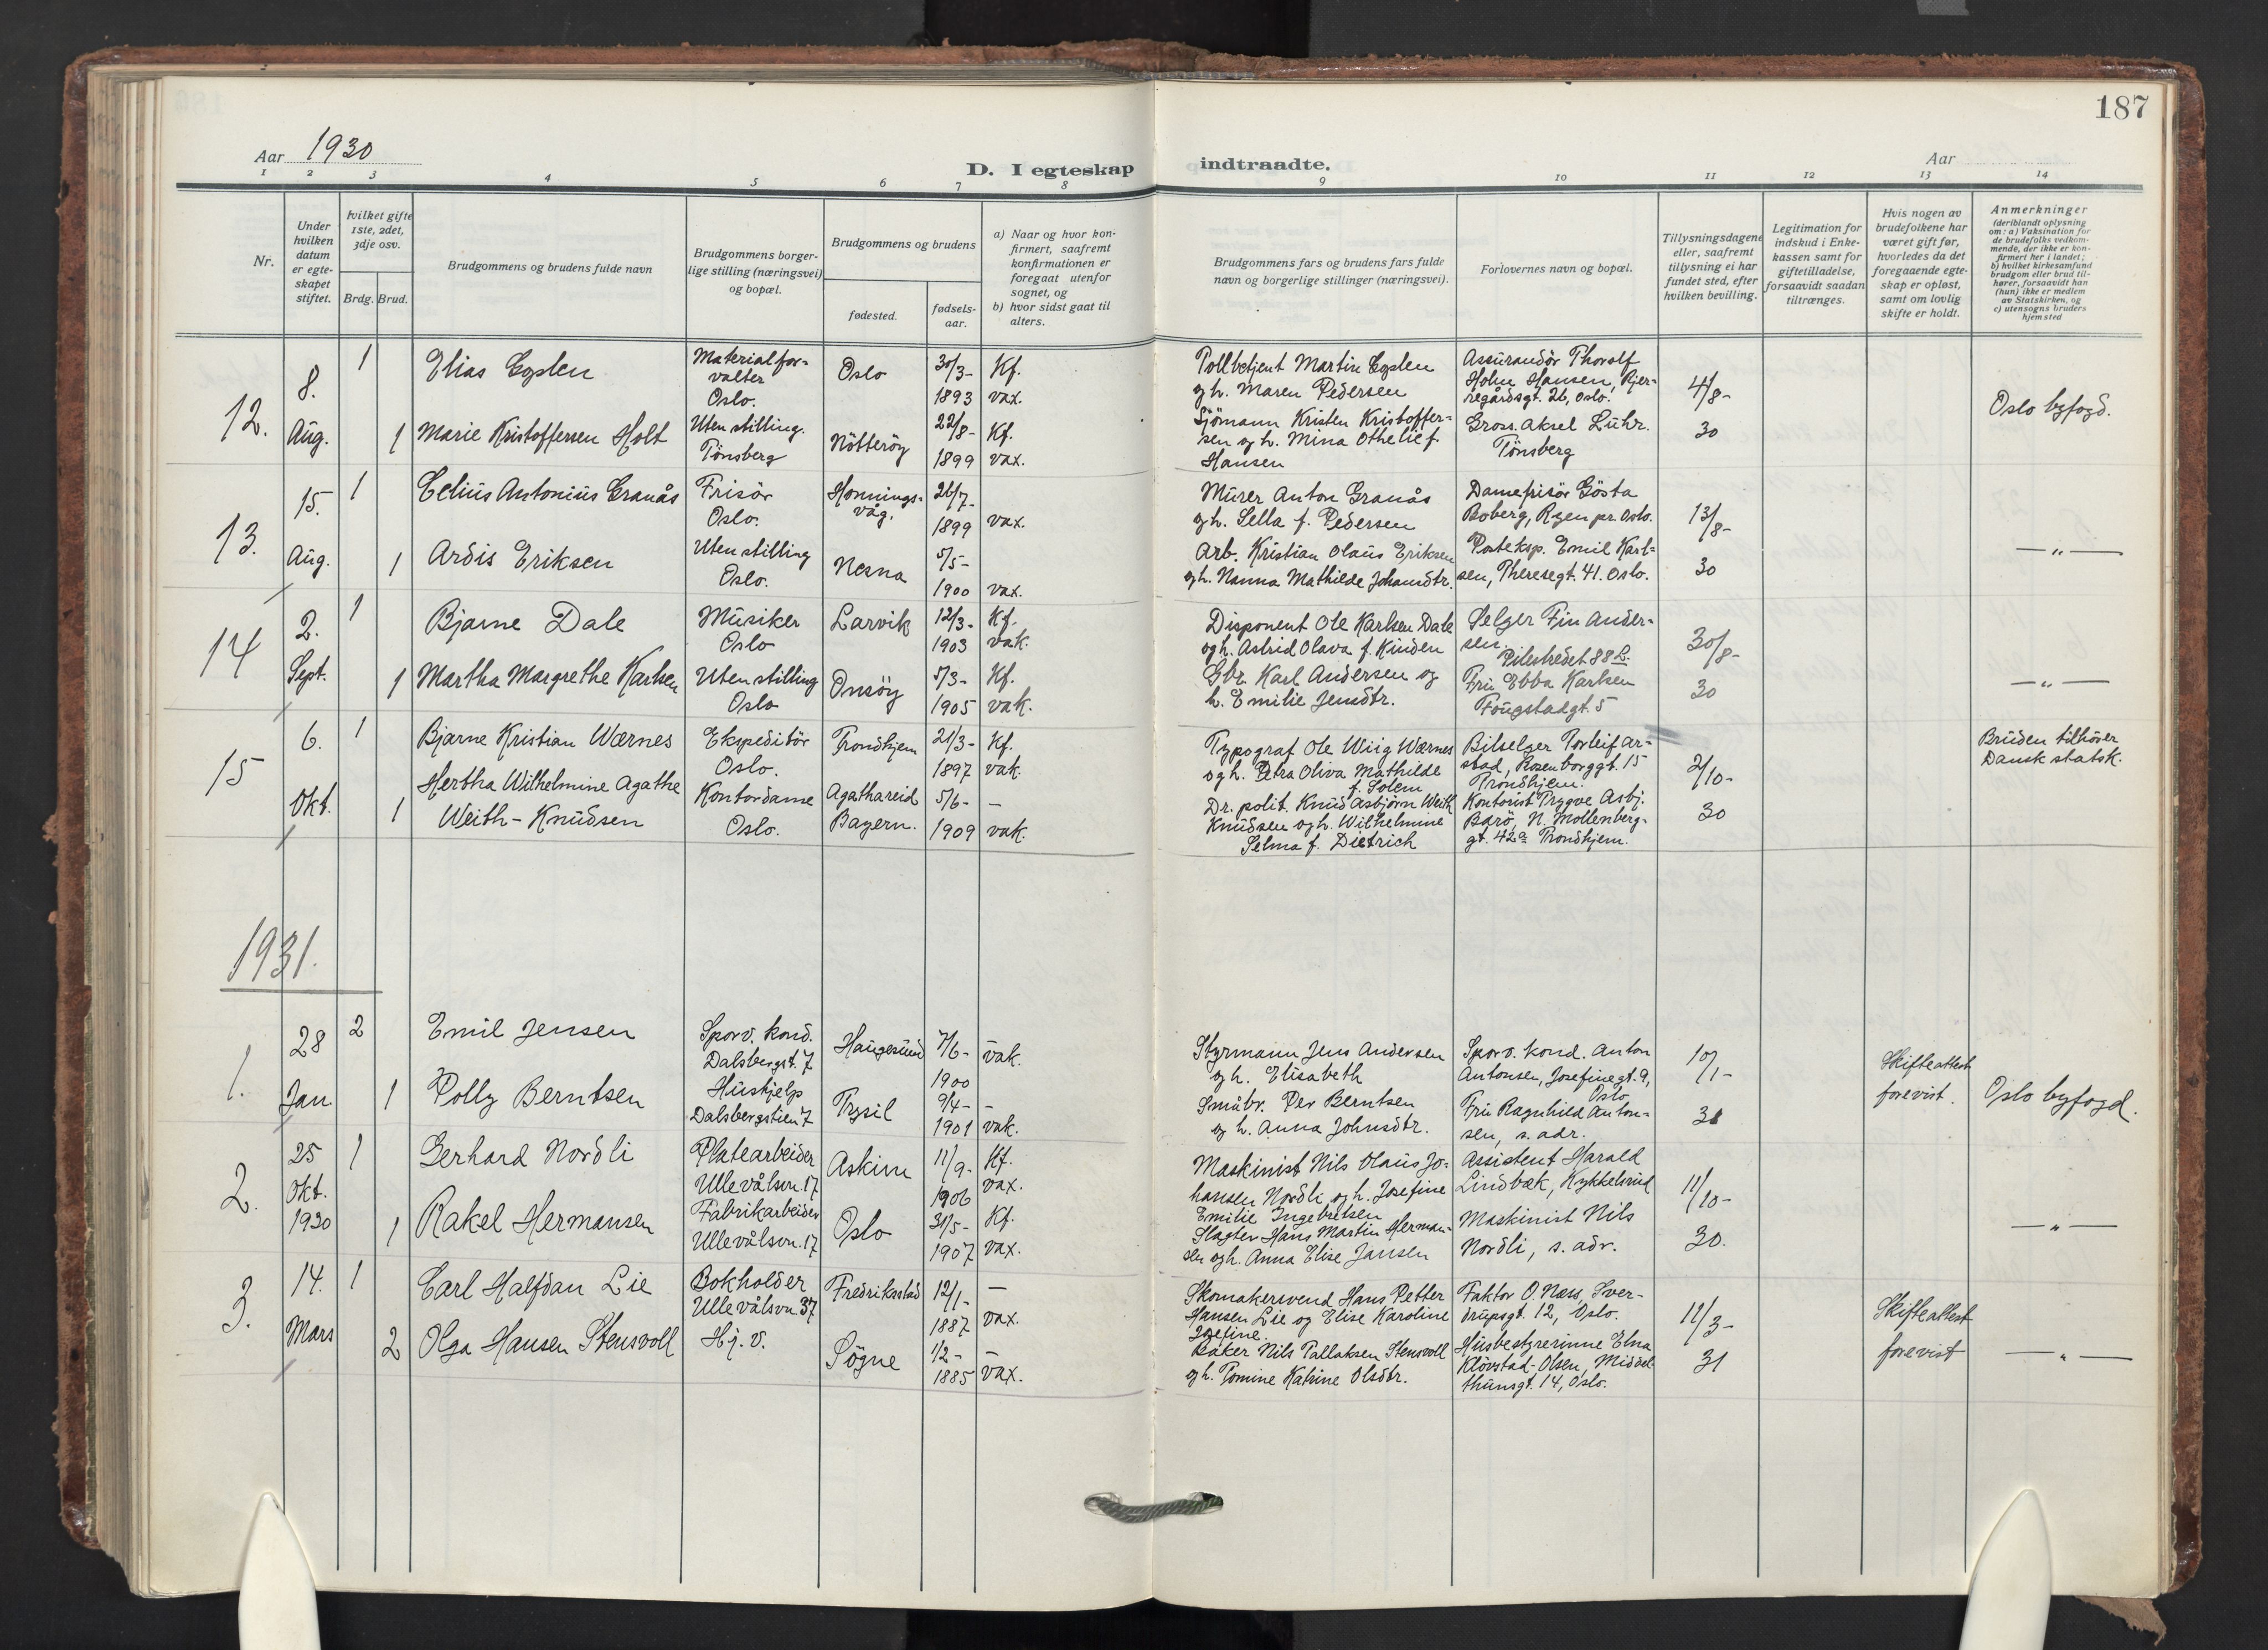 187
Aar 1930
D. I egteskap indtraadte.
Aar
1 2 3 4 5 6 7 8 9 10 11 12 13 14
Nr.
Under hvilken datum er egte-skapet stiftet.
hvilket gifte 1ste, 2det, 3dje osv.
Brdg. Brud.
Brudgommens og brudens fulde navn
Brudgommens borger-
lige stilling (næringsvei)
og bopæl.
Brudgommens og brudens
fødested.
fødsels-
aar.
a) Naar og hvor kon-
firmert, saafremt
konfirmationen er
foregaat utenfor
sognet, og
b) hvor sidst gaat til
alters.
Brudgommens fars og brudens fars fulde
navn og borgerlige stillinger (næringsvei).
Forlovernes navn og bopæl.
Tillysningsdagene
eller, saafremt
tillysning ei har
fundet sted, efter
hvilken bevilling.
Legitimation for
indskud i Enke-
kassen samt for
giftetilladelse,
forsaavidt saadan
tiltrænges.
Hvis nogen av
brudefolkene har
været gift før,
hvorledes da det
foregaaende egte-
skap er opløst,
samt om lovlig
skifte er holdt.
Anmerkninger
(deriblandt oplysning
om: a) Vaksination for
de brudefolks vedkom-
mende, der ikke er kon-
firmert her i landet;
b) hvilket kirkesamfund
brudgom eller brud til-
hører, forsaavidt han
(hun) ikke er medlem
av Statskirken, og
c) utensogns bruders
hjemsted
12.
8.
Aug.
1
Elias
Materialfor-
valter
Oslo.
Oslo
30/3-
1893
Kf.
vax.
Tollbetjent Martin
og h. Maren Pedersen
Assurandör Thorolf
Holm Hansen, Bjer-
regårdsgt. 26, Oslo.
4/8-
30
Oslo byfogd.
1
Marie Kristoffersen Holt
Uten stilling.
Tönsberg
Nötteröy
22/8-
1899
Kf.
vax.
Sjömann Kristen Kristoffer-
sen og h. Mina Othelie f.
Hansen
Gross. Aksel Lühr.
Tönsberg
13.
15.
Aug.
1
Celius Antonius Granås
Frisör
Oslo.
Honnings-
våg.
26/7-
1899
vax.
Murer Anton Granås
og h. Sella f. Pedersen
Damefrisör Gösta
Boberg, Ryen pr. Oslo.
13/8-
30
— „ —
1
Ardis Eriksen
Uten stilling
Oslo.
Nesna
5/5-
1900
vax.
Arb. Kristian Olaus Eriksen
og h. Nanna Mathilde Johansdtr.
Posteksp. Emil Karl-
sen, Theresegt. 41. Oslo.
14
2.
Sept.
1
Bjarne Dale
Musiker
Oslo
Larvik
12/3-
1903
Kf.
vak.
Disponent Ole Karlsen Dale
og h. Astrid Olava f. Kinden
Selger Fin Ander-
sen.
Pilestredet 88
30/8-
30
— „ —
1
Martha Margrethe Karlsen
Uten stilling
Oslo
Onsöy
5/3-
1905
Kf.
vak.
Gbr. Karl Andersen og
h. Emilie Jensdtr.
Fru Ebba Karlsen
Fougstadgt. 5
15
6.
Okt.
1
Bjarne Kristian Wærnes
Ekspeditör
Oslo.
Trondhjem
21/3-
1897
Kf.
vak.
Typograf Ole Wiig Wærnes
og h. Petra Oliva Mathilde
f. Solem
Bilselger Torleif Ar-
stad, Rosenborggt. 15
Trondhjem.
2/10-
30
Bruden tilhörer
Dansk statsk.
1
Hertha Wilhelmine Agathe
Weith-Knudsen
Kontordame
Oslo.
Agathareid
Bayern.
5/6-
1909
—
vak.
Dr. polit. Knud Asbjörn Weith
Knudsen og h. Wilhelmine
Selma f. Dietrich
Kontorist Trygve Asbj.
Barö, N. Mollenberg-
gt. 42a Trondhjem.
1931.
1.
28
Jan.
2
Emil Jensen
Sporv. kond.
Dalsbergst. 7
Haugesund
7/6-
1900
—
vak.
Styrmann Jens Andersen
og h. Elisabeth
Sporv. kond. Anton
Antonsen, Josefinegt. 9,
Oslo
10/1-
31
Skifteattest
forevist.
Oslo byfogd.
1
Polly Berntsen
Hushjelp
Dalsbergstien 7
Trysil
9/4-
1901
—
vak.
Småbr. Per Berntsen
og h. Anna Johnsdtr.
Fru Ragnhild Anton-
sen, s. adr.
2.
25
Okt.
1930
1
Gerhard Nordli
Platearbeider
Ullevålsvn. 17
Askim
11/9-
1906
Kf.
vax.
Maskinist Nils Olaus Jo-
hansen Nordli og h. Josefine
Emilie Ingebretsen
Assistent Harald
Lindbæk, Kykkelsrud
11/10-
30.
— „ —
1
Rakel Hermansen
Fabrikarbeider
Ullevålsvn. 17
Oslo
31/5-
1907
Kf.
vax.
Slagter Hans Martin Herman-
sen og h. Anna Elise Jansen
Maskinist Nils
Nordli, s. adr.
3.
14.
Mars
1
Carl Halfdan Lie
Bokholder
Ullevålsvn 37
Fredriksstad
12/1-
1887
—
vax.
Skomakersvend Hans Petter
Hansen Lie og Elise Karoline
Josefine.
Faktor O. Næss, Sver-
drupsgt. 12, Oslo.
11/3-
31
Skifteattest
forevist
— „ —
2
Olga Hansen Stensvoll
Hj. v.
Sögne
1/2-
1885
—
vax.
Baker Nils Tallaksen Stensvoll
og h. Tomine Katrine Olsdtr.
Husbestyrerinne Elna
Klövstad-Olsen, Middel-
thunsgt. 14, Oslo.